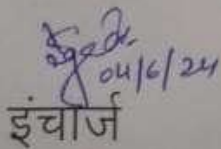 04/6/24
इंचार्ज